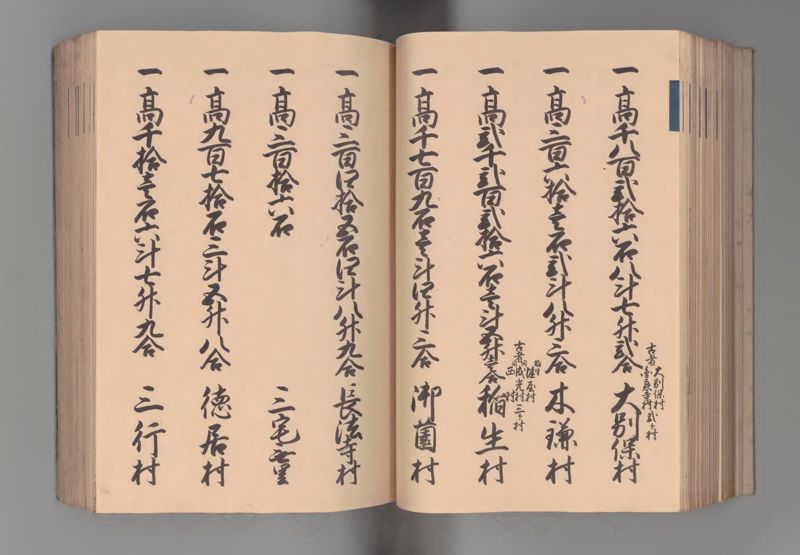 一高千八百弐拾六石八斗七升弐合 大別保村
古者大別保村
弐ヶ村
一高三百六拾壱石弐斗八升三合 木鎌村
一高弐千弐百弐拾六石壱斗五升壱合 稲生村
古者
塩屋村
西村
三ヶ村
一高千七百九石壱斗四升三合 御薗村
一高三百四拾五石四斗八升九合 長法寺村
一高三百拾六石 三宅
一高九百七拾石三斗五升八合 徳居村
一高千拾壱石六斗七升九合 三行村